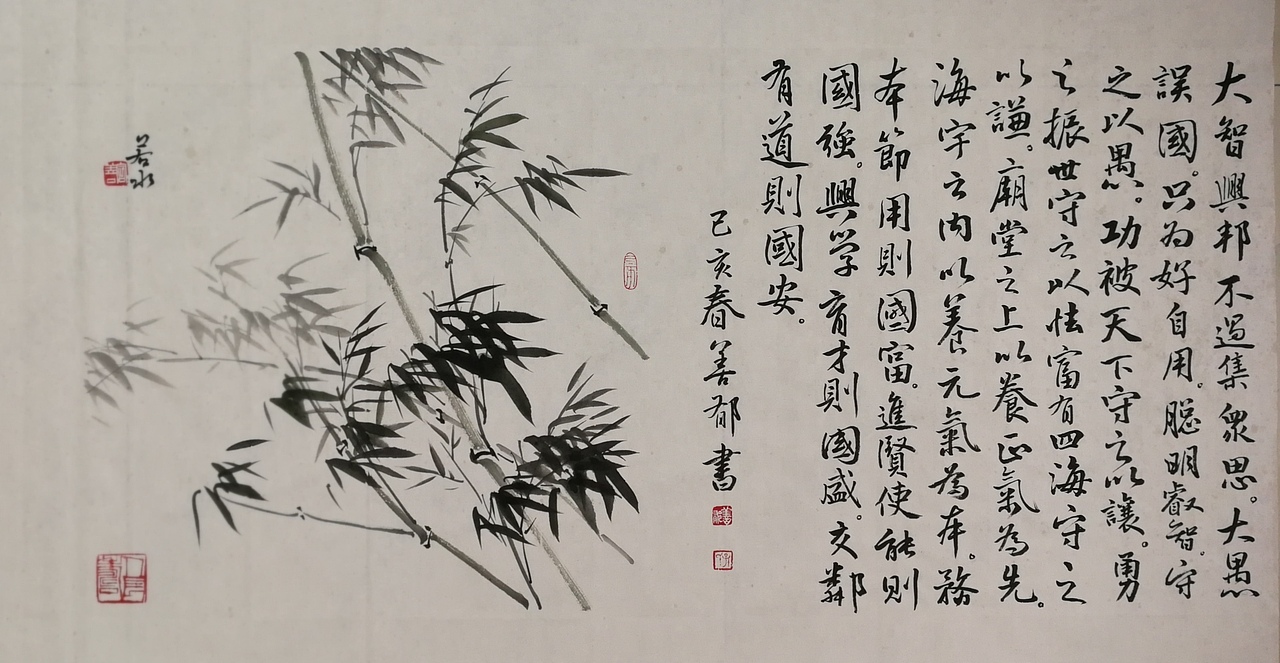 大智興邦不過集衆思。大愚
誤國。只为好自用。聪明叡智。守
之以愚。功被天下守之以讓。勇
之振世守之以怯富有四海守之
以謙。廟堂之上以養正氣為先。
海宇之内以養元氣為本。務
本節用則國富。進賢使能則
國強。興学育才則國盛。交鄰
有道則國安。
己亥春善郁書
若水